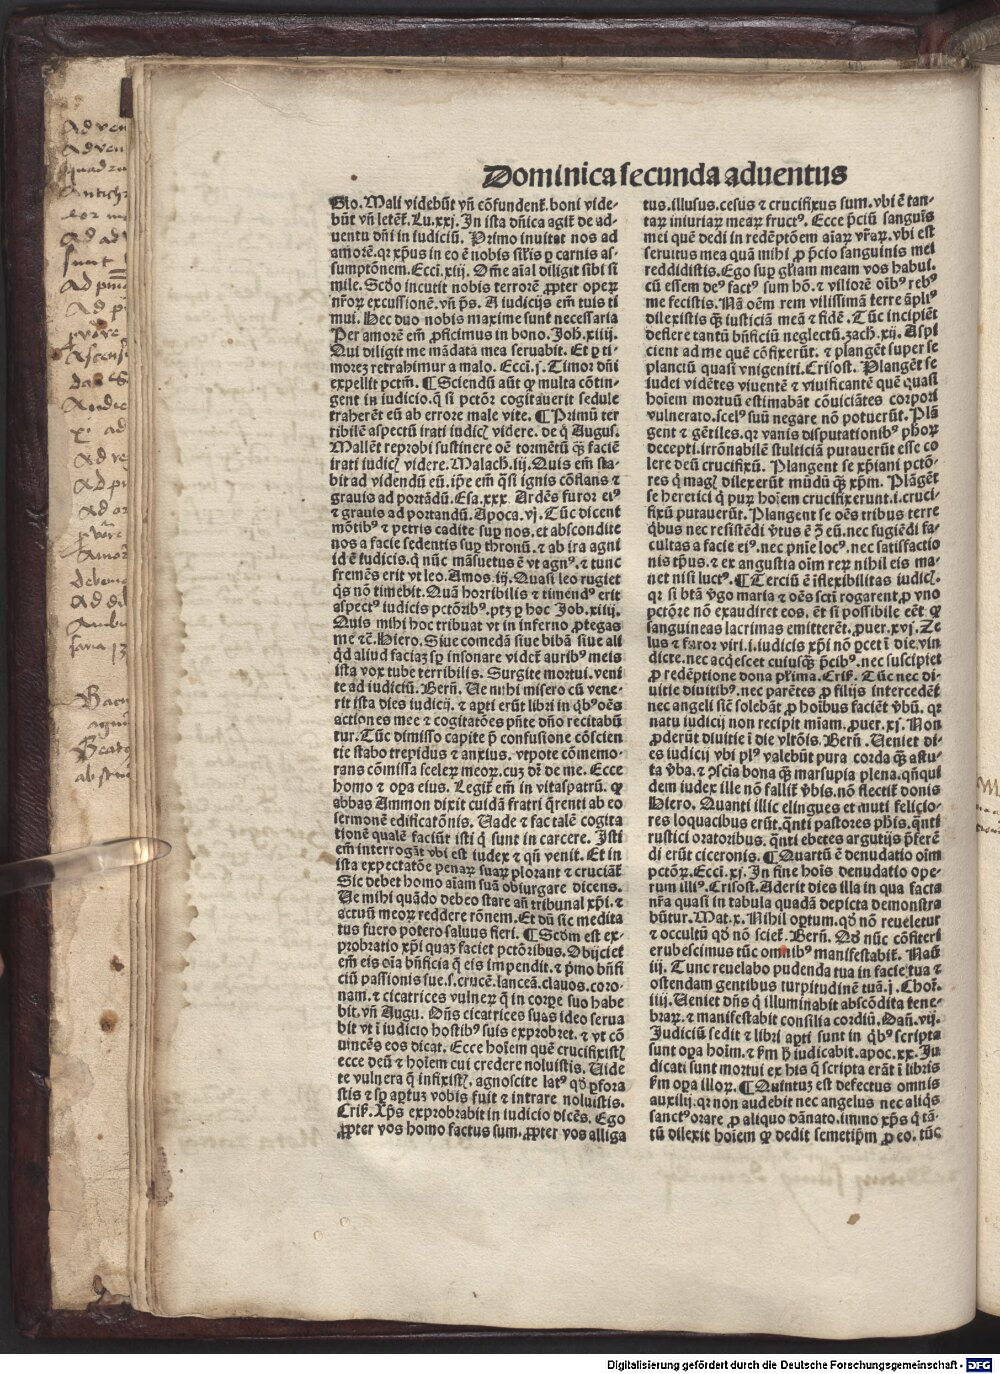 Dominica secunda aduentus
Glo. Mali videbūt vn̄ cōfundent᷑. boni vide⸗
būt vn̄ letēt᷑. Lu.xxj. In ista dn̄ica agit᷑ de ad⸗
uentu dn̄i in iudiciū. Primo inuitat nos ad
amorē. qꝛ xp̄us in eo ē nobis sil̄is ꝑ carnis as⸗
sumptōnem. Ecci. xiij. Om̄e aīal diligit sibi si
mile. Scd̄o incutit nobis terrorē ꝓpter oꝑeꝝ
nr̄oꝝ excussionē. vn̄ ps̄. A iudicijs em̄ tuis ti
mui. Hec duo nobis maxime sunt necessaria
Per amorē em̄ ꝓficimus in bono. Joh. xiiij.
Qui diligit me mādata mea seruabit. Et ꝑ ti⸗
moreʒ retrahimur a malo. Ecci. j. Timor dn̄i
expellit pctm̄. ¶ Sciendū aūt ꝙ multa cōtin⸗
gent in iudicio. q̄ si pctōr cogitauerit sedule
traherēt eū ab errore male vite. ¶ Primū ter
ribilē aspectū irati iudicꝭ videre. de q̄ Augus.
Mallēt reprobi sustinere oē tormētū qꝫ faciē
irati iudicꝭ videre. Malach. iij. Quis em̄ sta⸗
bit ad videndū eū. ip̄e em̄ q̄si ignis cōflans ⁊
grauis ad portādū. Esa. xxx. Ardēs furor eiꝰ
⁊ grauis ad portandū. Apoca. vj. Tūc dicent
mōtibꝰ ⁊ petris cadite suꝑ nos. et abscondite
nos a facie sedentis suꝑ thronū. ⁊ ab ira agni
id ē iudicis. q̄ nūc māsuetus ē vt agnꝰ. ⁊ tunc
fremēs erit vt leo. Amos. iij. Quasi leo rugiet
q̄s nō timebit. Quā horribilis ⁊ timendꝰ erit
aspectꝰ iudicis pctōribꝰ. ptꝫ ꝑ hoc Job. xiiij.
Quis mihi hoc tribuat vt in inferno ꝓtegas
me ⁊c̄. Hiero. Siue comedā siue bibā siue ali
qd̄ aliud faciaꝫ sꝑ insonare videt᷑ auribꝰ meis
ista vox tube terribilis. Surgite mortui. veni
te ad iudiciū. Bern̄. Ve mihi misero cū vene⸗
rit ista dies iudicij. ⁊ aꝑti erūt libri in q̄bꝰ oēs
actiones mee ⁊ cogitatōes pn̄te dn̄o recitabū
tur. Tūc dimisso capite ꝑ confusione cōscien
tie stabo trepidus ⁊ anxius. vtpote cōmemo⸗
rans cōmissa sceleꝝ meoꝝ. cuꝫ dr̄ de me. Ecce
homo ⁊ oꝑa eius. Legit᷑ em̄ in vitaspatrū. ꝙ
abbas Ammon dixit cuidā fratri q̄renti ab eo
sermonē edificatōnis. Vade ⁊ fac talē cogita
tionē qualē faciūt isti q̄ sunt in carcere. Isti
em̄ interrogāt vbi est iudex ⁊ qn̄ venit. Et in
ista expectatōe penaꝝ suaꝝ plorant ⁊ cruciāt᷑
Sic debet homo aīam suā obiurgare dicens.
Ue mihi quādo debeo stare an̄ tribunal xp̄i. ⁊
actuū meoꝝ reddere rōnem. Et dū sic medita
tus fuero potero saluus fieri. ¶ Scdm̄ est ex⸗
probratio xp̄i quaꝫ faciet pctōribus. Obijciet
em̄ eis oīa bn̄ficia q̄ eis impendit. ⁊ pⁱmo bn̄fi
ciū passionis sue. s. crucē. lanceā. clauos. coro⸗
nam. ⁊ cicatrices vulneꝝ q̄ in corꝑe suo habe
bit. vn̄ Augu. Dn̄s cicatrices suas ideo serua
bit vt ī iudicio hostibꝰ suis exprobret. ⁊ vt cō
uincēs eos dicat. Ecce hoīem quē crucifixistꝭ
ecce deū ⁊ hoīem cui credere noluistis. Vide
te vulnera q̄ infixistꝭ. agnoscite latꝰ qd̄ ꝑfora
stis ⁊ sꝑ aꝑtuꝫ vobis fuit ⁊ intrare noluistis.
Cris̄. Xp̄s exprobrabit in iudicio dicēs. Ego
ꝓpter vos homo factus sum. ꝓpter vos alliga
tus. illusus. cesus ⁊ crucifixus sum. vbi ē tan⸗
taꝝ iniuriaꝝ meaꝝ fructꝰ. Ecce p̄ciū sanguīs
mei quē dedi in redēptōem aīaꝝ vr̄aꝝ. vbi est
seruitus mea quā mihi ꝓ p̄cio sanguinis mei
reddidistis. Ego suꝑ gl̄iam meam vos habui.
cū essem deꝰ factꝰ sum hō. ⁊ viliorē oībꝰ rebꝰ
me fecistis. Nā oēm rem vilissimā terre āpliꝰ
dilexistis qꝫ iusticiā meā ⁊ fidē. Tūc incipiēt
deflere tantū bn̄ficiū neglectū. zach. xij. Aspi
cient ad me quē cōfixerūt. ⁊ plangēt super se
planctu quasi vnigeniti. Crisost. Plangēt se
iudei vidētes viuentē ⁊ viuificantē quē quasi
hoīem mortuū estimabāt cōuiciātes corpori
vulnerato. scelꝰ suū negare nō potuerūt. Plā
gent ⁊ gētiles. qꝛ vanis disputationibꝰ ph̄oꝝ
decepti. irrōnabilē stulticiā putauerūt esse co
lere deū crucifixū. Plangent se xp̄iani pctō⸗
res q̄ magꝭ dilexerūt mūdū qꝫ xp̄m. Plāgēt
se heretici q̄ puꝝ hoīem crucifixerunt. i. cruci⸗
fixū putauerūt. Plangent se oēs tribus terre
q̄bus nec resistēdi v̄tus ē ↄ̄ eū. nec fugiēdi fa⸗
cultas a facie eiꝰ. nec pn̄ie locꝰ. nec satisfactio
nis tp̄us. ⁊ ex angustia oīm reꝝ nihil eis ma⸗
net nisi luctꝰ. ¶ Terciū ē īflexibilitas iudicꝭ.
qꝛ si btā v̄go maria ⁊ oēs scti rogarent ꝓ vno
pctōre nō exaudiret eos. ēt si possibile eēt ꝙ
sanguineas lacrimas emitterēt. ꝓuer. xvj. Ze
lus ⁊ furor viri. i. iudicis xp̄i nō ꝑcet ī die vin
dicte. nec acq̄escet cuiusqꝫ p̄cibꝰ. nec suscipiet
ꝓ redēptione dona plⁱma. Cris̄. Tūc nec di⸗
uitie diuitibꝰ. nec parētes ꝓ filijs intercedēt
nec angeli sic̄ solebāt ꝓ hoībus faciēt v̄bū. qꝛ
natu iudicij non recipit mīam. ꝓuer. xj. Non
ꝓderūt diuitie ī die vltōis. Bern̄. Veniet di⸗
es iudicij vbi plꝰ valebūt pura corda qꝫ astu⸗
ta v̄ba. ⁊ ↄscīa bona qꝫ marsupia plena. qn̄qui
dem iudex ille nō fallit᷑ v̄bis. nō flectit᷑ donis
Hiero. Quanti illic elingues et muti felicio⸗
res loquacibus erūt. q̄nti pastores ph̄is. q̄nti
rustici oratoribus. q̄nti ebetes argutijs p̄ferē
di erūt ciceronis. ¶ Quartū ē denudatio oīm
pctōꝝ. Ecci. xj. In fine hoīs denudatio ope⸗
rum illiꝰ. Crisost. Aderit dies illa in qua facta
nr̄a quasi in tabula quadā depicta demonstra
būtur. Mat. x. Nihil oꝑtum. qd̄ nō reueletur
⁊ occultū qd̄ nō sciet᷑. Bern̄. Qd̄ nūc cōfiteri
erubescimus tūc omnibꝰ manifestabit᷑. Naū
iij. Tunc reuelabo pudenda tua in facie tua ⁊
ostendam gentibus turpitudinē tuā. j. Chor̄.
iiij. Veniet dn̄s q̄ illuminabit abscōdita tene⸗
braꝝ. ⁊ manifestabit consilia cordiū. Dan̄. vij.
Judiciū sedit ⁊ libri aꝑti sunt in q̄bꝰ scripta
sunt oꝑa hoīm. ⁊ s̄m h̄ iudicabit. apoc. xx. Ju
dicati sunt mortui ex his q̄ scripta erāt ī libris
s̄m oꝑa illoꝝ. ¶ Quintuꝫ est defectus omnis
auxilij. qꝛ non audebit nec angelus nec aliq̄s
sanctꝰ orare ꝓ aliquo dānato. immo xp̄s q̄ tā⸗
tū dilexit hoīem ꝙ dedit semetip̄m ꝓ eo. tūc
Digitalisierung gefördert durch die Deutsche Forschungsgemeinschaft - DFG